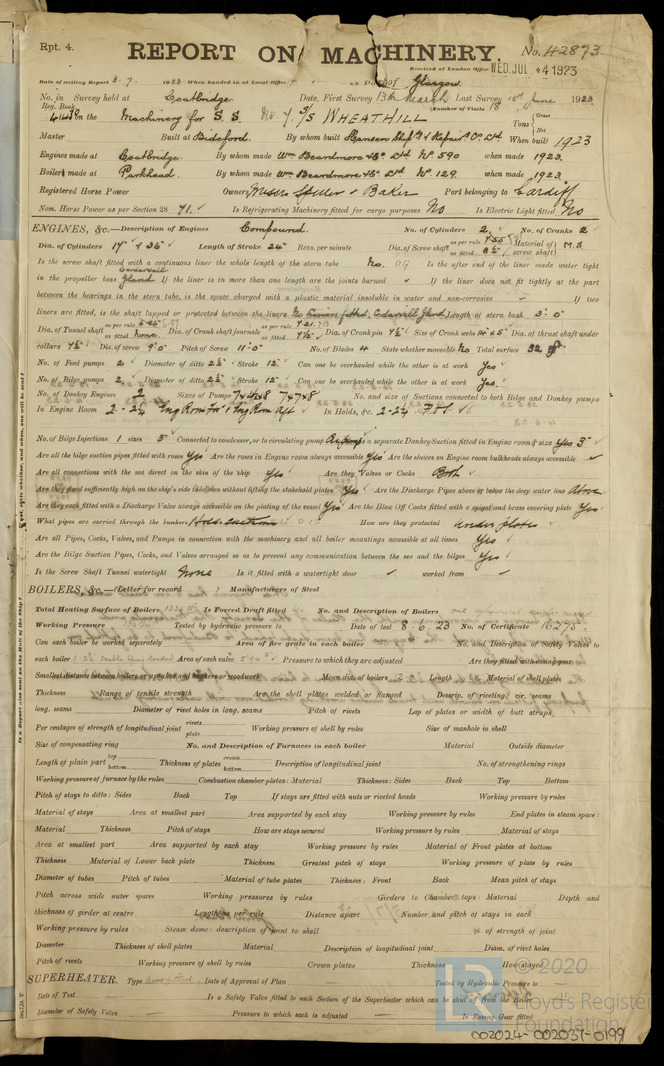 Rpt. 4.
REPORT ON MACHINERY. No. 42873
Received at London Office WED. JUL 4 1923
Date of writing Report 3. 7. 1923 When handed in at Local Office Port of Glasgow
No. in Survey held at Coatbridge Date, First Survey 13th March Last 18th June 1923
Reg. Book. (Number of Visits 18
on the Machinery for S. S. No 7. S/S WHEATHILL Tons { Gross Net
Master Built at Bideford. By whom built Hansen Ship & Repair Co. Ltd When built 1923
Engines made at Coatbridge. By whom made Wm Beardmore & Co Ltd No 590 when made 1923.
Boilers made at Parkhead. By whom made Wm Beardmore & Co Ltd No 129. when made 1923.
Registered Horse Power Owners Messrs Spillers & Baker Port belonging to Cardiff
Nom. Horse Power as per Section 28 71. Is Refrigerating Machinery fitted for cargo purposes No Is Electric Light fitted No
ENGINES, &c.—Description of Engines Compound. No. of Cylinders 2 No. of Cranks 2
Dia. of Cylinders 17" & 36" Length of Stroke 24" Revs. per minute Dia. of Screw shaft as per rule 7.55 as fitted 8½" Material of screw shaft) M.S
Is the screw shaft fitted with a continuous liner the whole length of the stern tube No. OG Is the after end of the liner made water tight
in the propeller boss Cedervall Gland If the liner is in more than one length are the joints burned If the liner does not fit tightly at the part
between the bearings in the stern tube, is the space charged with a plastic material insoluble in water and non-corrosive If two
liners are fitted, is the shaft lapped or protected between the liners No Liners fitted, Cedervall Gland Length of stern bush 3'. 0"
Dia. of Tunnel shaft as per rule as fitted none. Dia. of Crank shaft journals as per rule 7.21 as fitted 7½" Dia. of Crank pin 7½" Size of Crank webs 14" x 5" Dia. of thrust shaft under
collars 7½" Dia. of screw 9'.0" Pitch of Screw 11'.0" No. of Blades 4 State whether moveable No Total surface 32 ft
No. of Feed pumps 2. Diameter of ditto 2½" Stroke 12" Can one be overhauled while the other is at work Yes
No. of Bilge pumps 2. Diameter of ditto 2½" Stroke 12" Can one be overhauled while the other is at work Yes.
No. of Donkey Engines 2 Sizes of Pumps 7x4½x8 7x7x8 No. and size of Suctions connected to both Bilge and Donkey pumps
In Engine Room 2 - 2¼ Eng Room For'd & Eng Room Aft In Holds, &c. 2 - 2¼ F & A
No. of Bilge Injections 1 sizes 3" Connected to condenser, or to circulating pump Air pump Is a separate Donkey Suction fitted in Engine room & size Yes 3"
Are all the bilge suction pipes fitted with roses Yes Are the roses in Engine room always accessible Yes Are the sluices on Engine room bulkheads always accessible
Are all connections with the sea direct on the skin of the ship Yes Are they Valves or Cocks Both
Are they fixed sufficiently high on the ship's side to be seen without lifting the stokehold plates Yes Are the Discharge Pipes above or below the deep water line Above.
Are they each fitted with a Discharge Valve always accessible on the plating of the vessel Yes Are the Blow Off Cocks fitted with a spigot and brass covering plate Yes
What pipes are carried through the bunkers Hold suctions How are they protected Under plates
Are all Pipes, Cocks, Valves, and Pumps in connection with the machinery and all boiler mountings accessible at all times Yes
Are the Bilge Suction Pipes, Cocks, and Valves arranged so as to prevent any communication between the sea and the bilges Yes
Is the Screw Shaft Tunnel watertight None Is it fitted with a watertight door worked from
BOILERS, &c.—(Letter for record ) Manufacturers of Steel
Total Heating Surface of Boilers Is Forced Draft fitted No. and Description of Boilers
Working Pressure Tested by hydraulic pressure to Date of test 8. 6. 23 No. of Certificate 16278
Can each boiler be worked separately Area of fire grate in each boiler No. and Description of Safety Valves to
each boiler Area of each valve Pressure to which they are adjusted Are they fitted with easing gear
Smallest distance between boilers or uptakes and bunkers or woodwork Mean dia. of boilers Length Material of shell plates
Thickness Range of tensile strength Are the shell plates welded or flanged Descrip. of riveting: cir. seams
long. seams Diameter of rivet holes in long. seams Pitch of rivets Lap of plates or width of butt straps
Per centages of strength of longitudinal joint rivets plate Working pressure of shell by rules Size of manhole in shell
Size of compensating ring No. and Description of Furnaces in each boiler Material Outside diameter
Length of plain part top bottom Thickness of plates crown bottom Description of longitudinal joint No. of strengthening rings
Working pressure of furnace by the rules Combustion chamber plates: Material Thickness: Sides Back Top Bottom
Pitch of stays to ditto: Sides Back Top If stays are fitted with nuts or riveted heads Working pressure by rules
Material of stays Area at smallest part Area supported by each stay Working pressure by rules End plates in steam space:
Material Thickness Pitch of stays How are stays secured Working pressure by rules Material of stays
Area at smallest part Area supported by each stay Working pressure by rules Material of Front plates at bottom
Thickness Material of Lower back plate Thickness Greatest pitch of stays Working pressure of plate by rules
Diameter of tubes Pitch of tubes Material of tube plates Thickness: Front Back Mean pitch of stays
Pitch across wide water spaces Working pressures by rules Girders to Chamber tops: Material Depth and
thickness of girder at centre Length as per rule Distance apart Number and pitch of stays in each
Working pressure by rules Steam dome: description of joint to shell % of strength of joint
Diameter Thickness of shell plates Material Description of longitudinal joint Diam. of rivet holes
Pitch of rivets Working pressure of shell by rules Crown plates Thickness How stayed
SUPERHEATER. Type Date of Approval of Plan Tested by Hydraulic Pressure to
Date of Test Is a Safety Valve fitted to each Section of the Superheater which can be shut off from the Boiler
Diameter of Safety Valve Pressure to which each is adjusted Is Easing Gear fitted
© 2020
Lloyd's Register
Foundation
002024-002037-0199